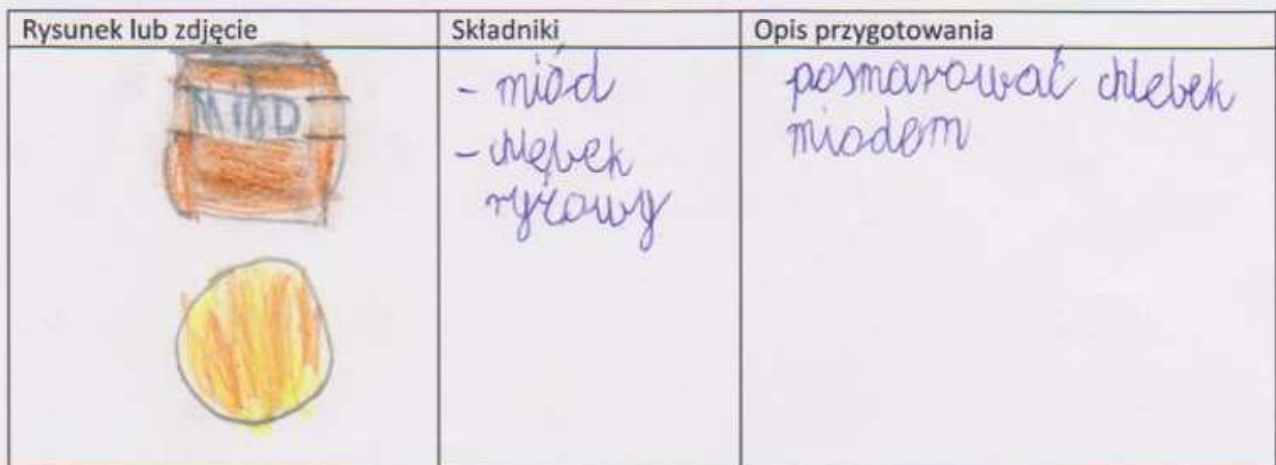 Rysunek lub zdjęcie
Składniki
Opis przygotowania
MIÓD
- miód
- chlebek
ryżowy
posmarować chlebek
miodem